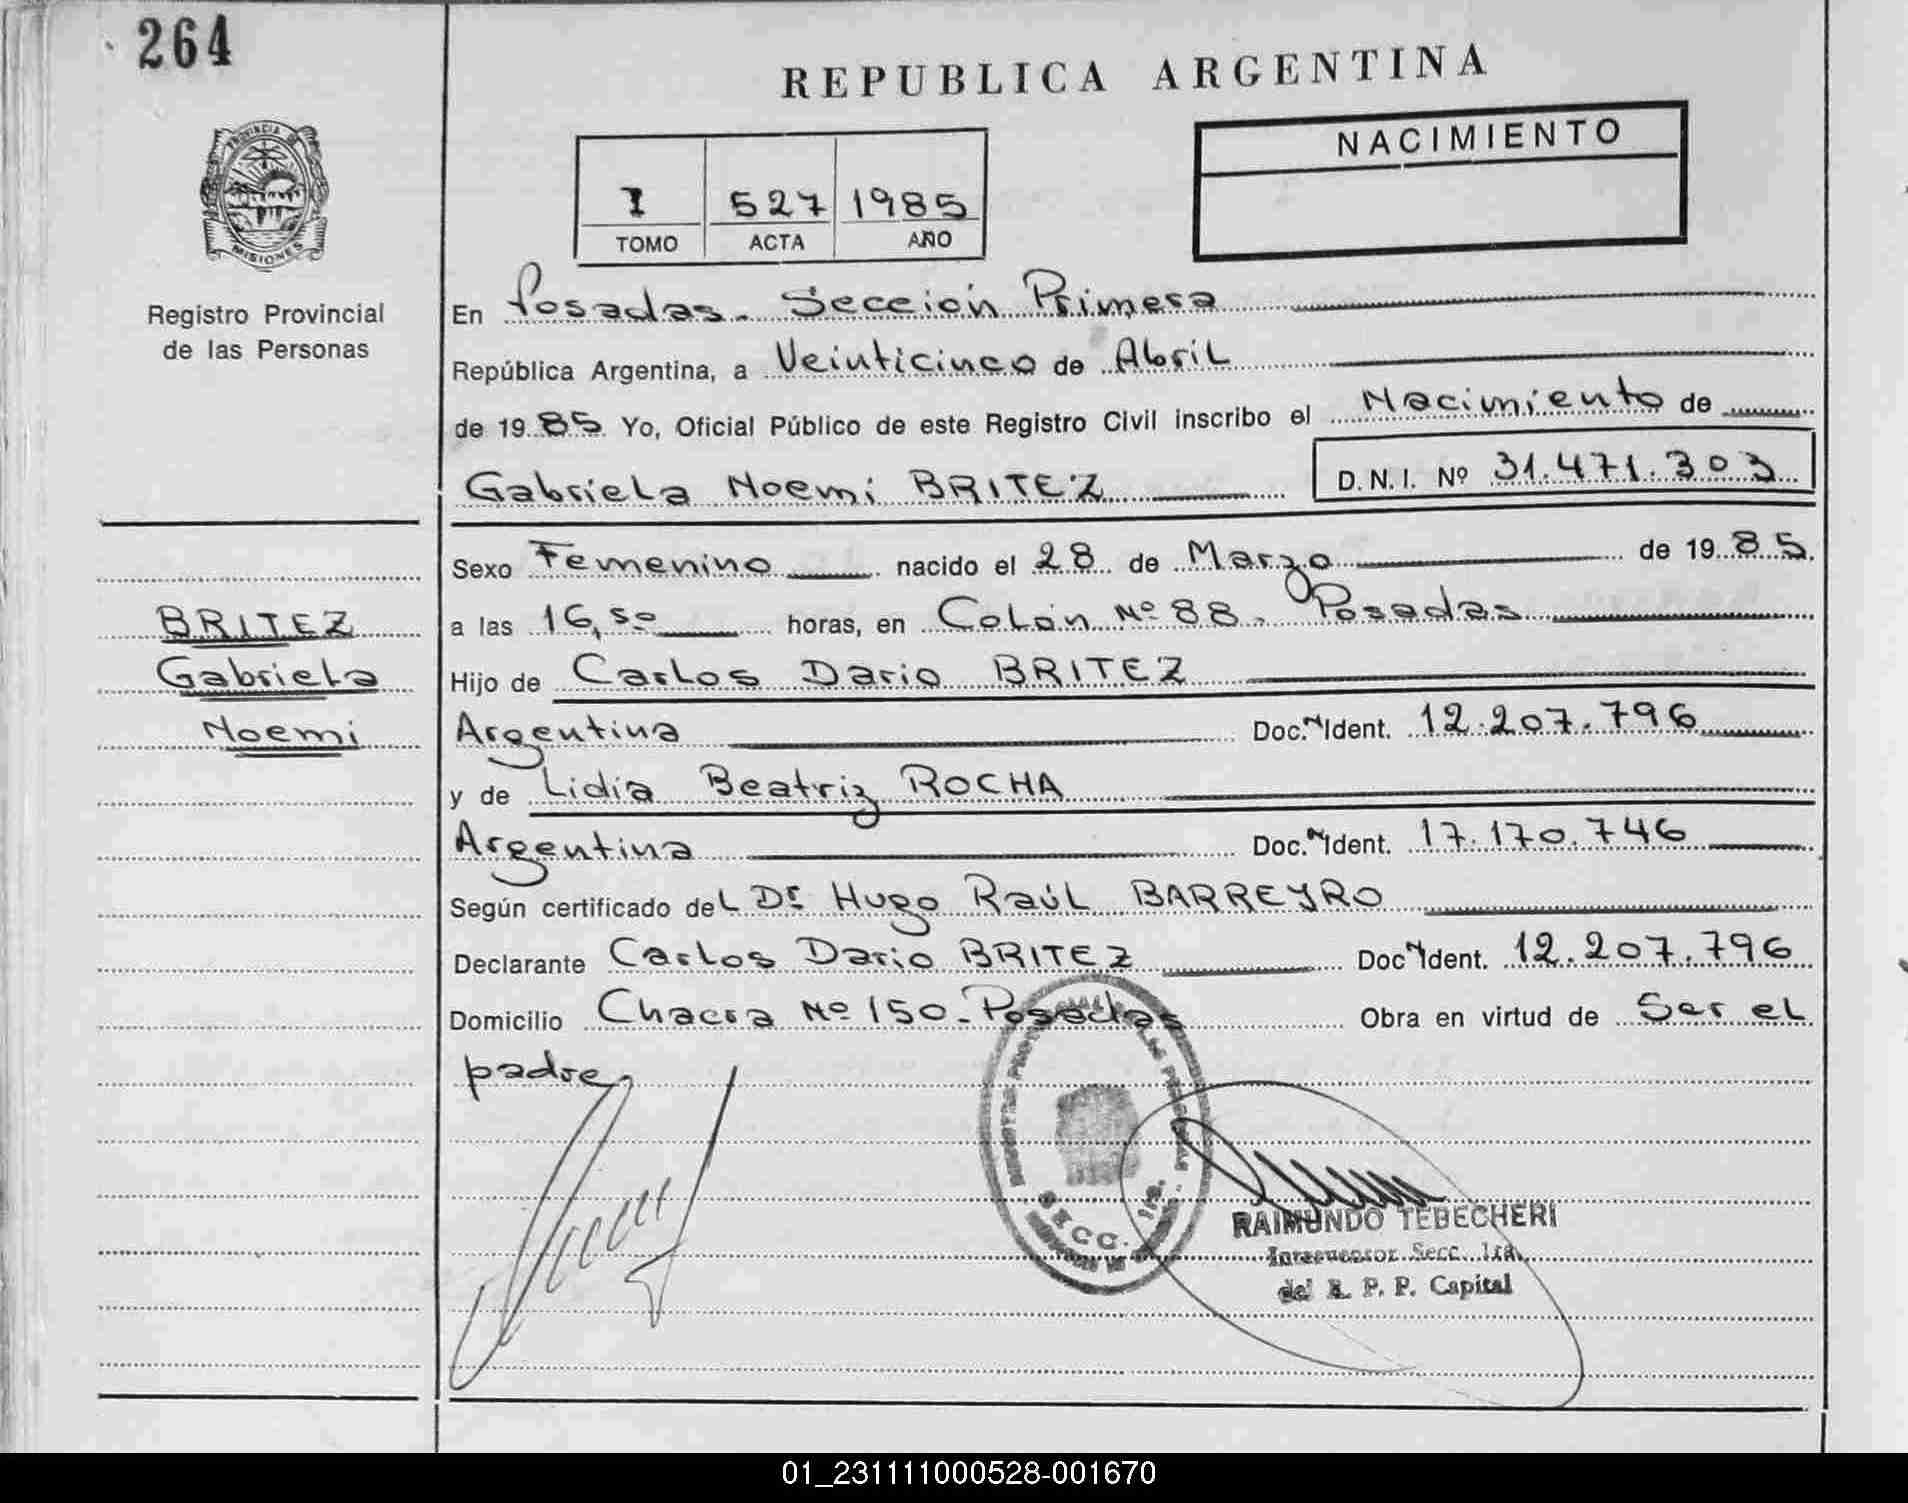 264
REPUBLICA ARGENTINA
PROVINCIA DE
MISIONES
Registro Provincial
de las Personas
NACIMIENTO
I 527 1985
TOMO ACTA AÑO
En Posadas. Sección Primera
República Argentina, a Veinticinco de Abril
de 19 85 Yo, Oficial Público de este Registro Civil inscribo el Nacimiento de
Gabriela Noemi BRITEZ D.N.I. Nº 31.471.303
Sexo Femenino nacido el 28 de Marzo de 19 85
BRITEZ
Gabriela
Noemi
a las 16,50 horas, en Colón Nº 88. Posadas
Hijo de Carlos Dario BRITEZ
Argentina Doc. N Ident. 12.207.796
y de Lidia Beatriz ROCHA
Argentina Doc. N Ident. 17.170.746
Según certificado del Dr Hugo Raúl BARREYRO
Declarante Carlos Dario BRITEZ Doc N Ident. 12.207.796
Domicilio Chacra Nº 150. Posadas Obra en virtud de Ser el
padre
SECC. 1ra.
RAIMUNDO TEBECHERI
Secc. 1ra.
del R. P. P. Capital
01_231111000528-001670